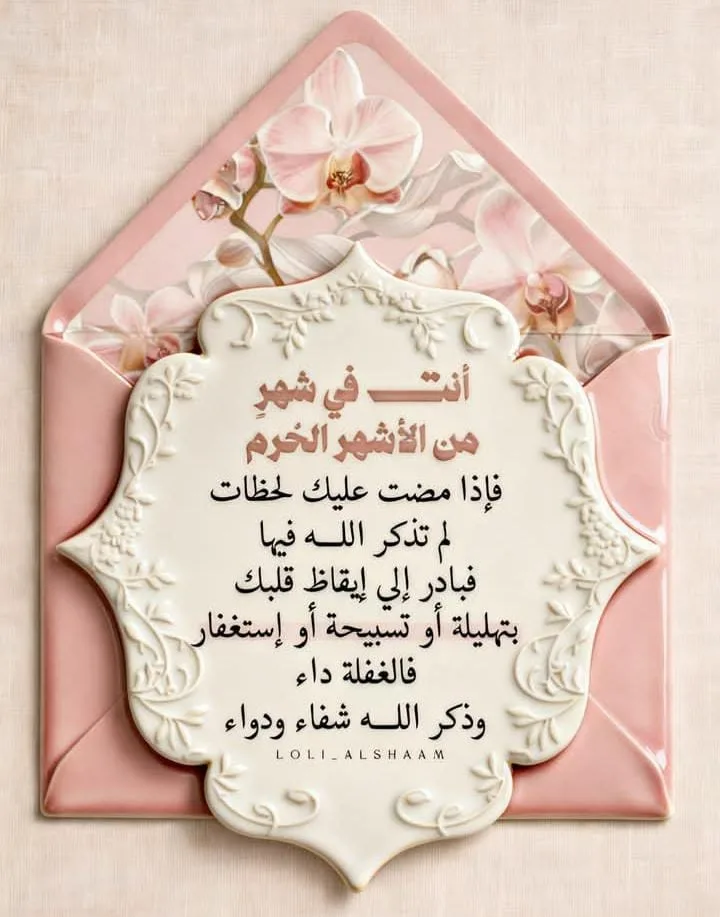 أنتــــ في شهرٍ
من الأشهر الحُرم
فإذا مضت عليك لحظات
لم تذكر اللــه فيها
فبادر إلي إيقاظ قلبك
بتهليلة أو تسبيحة أو إستغفار
فالغفلة داء
وذكر اللــه شفاء ودواء
LOLI_ALSHAAM